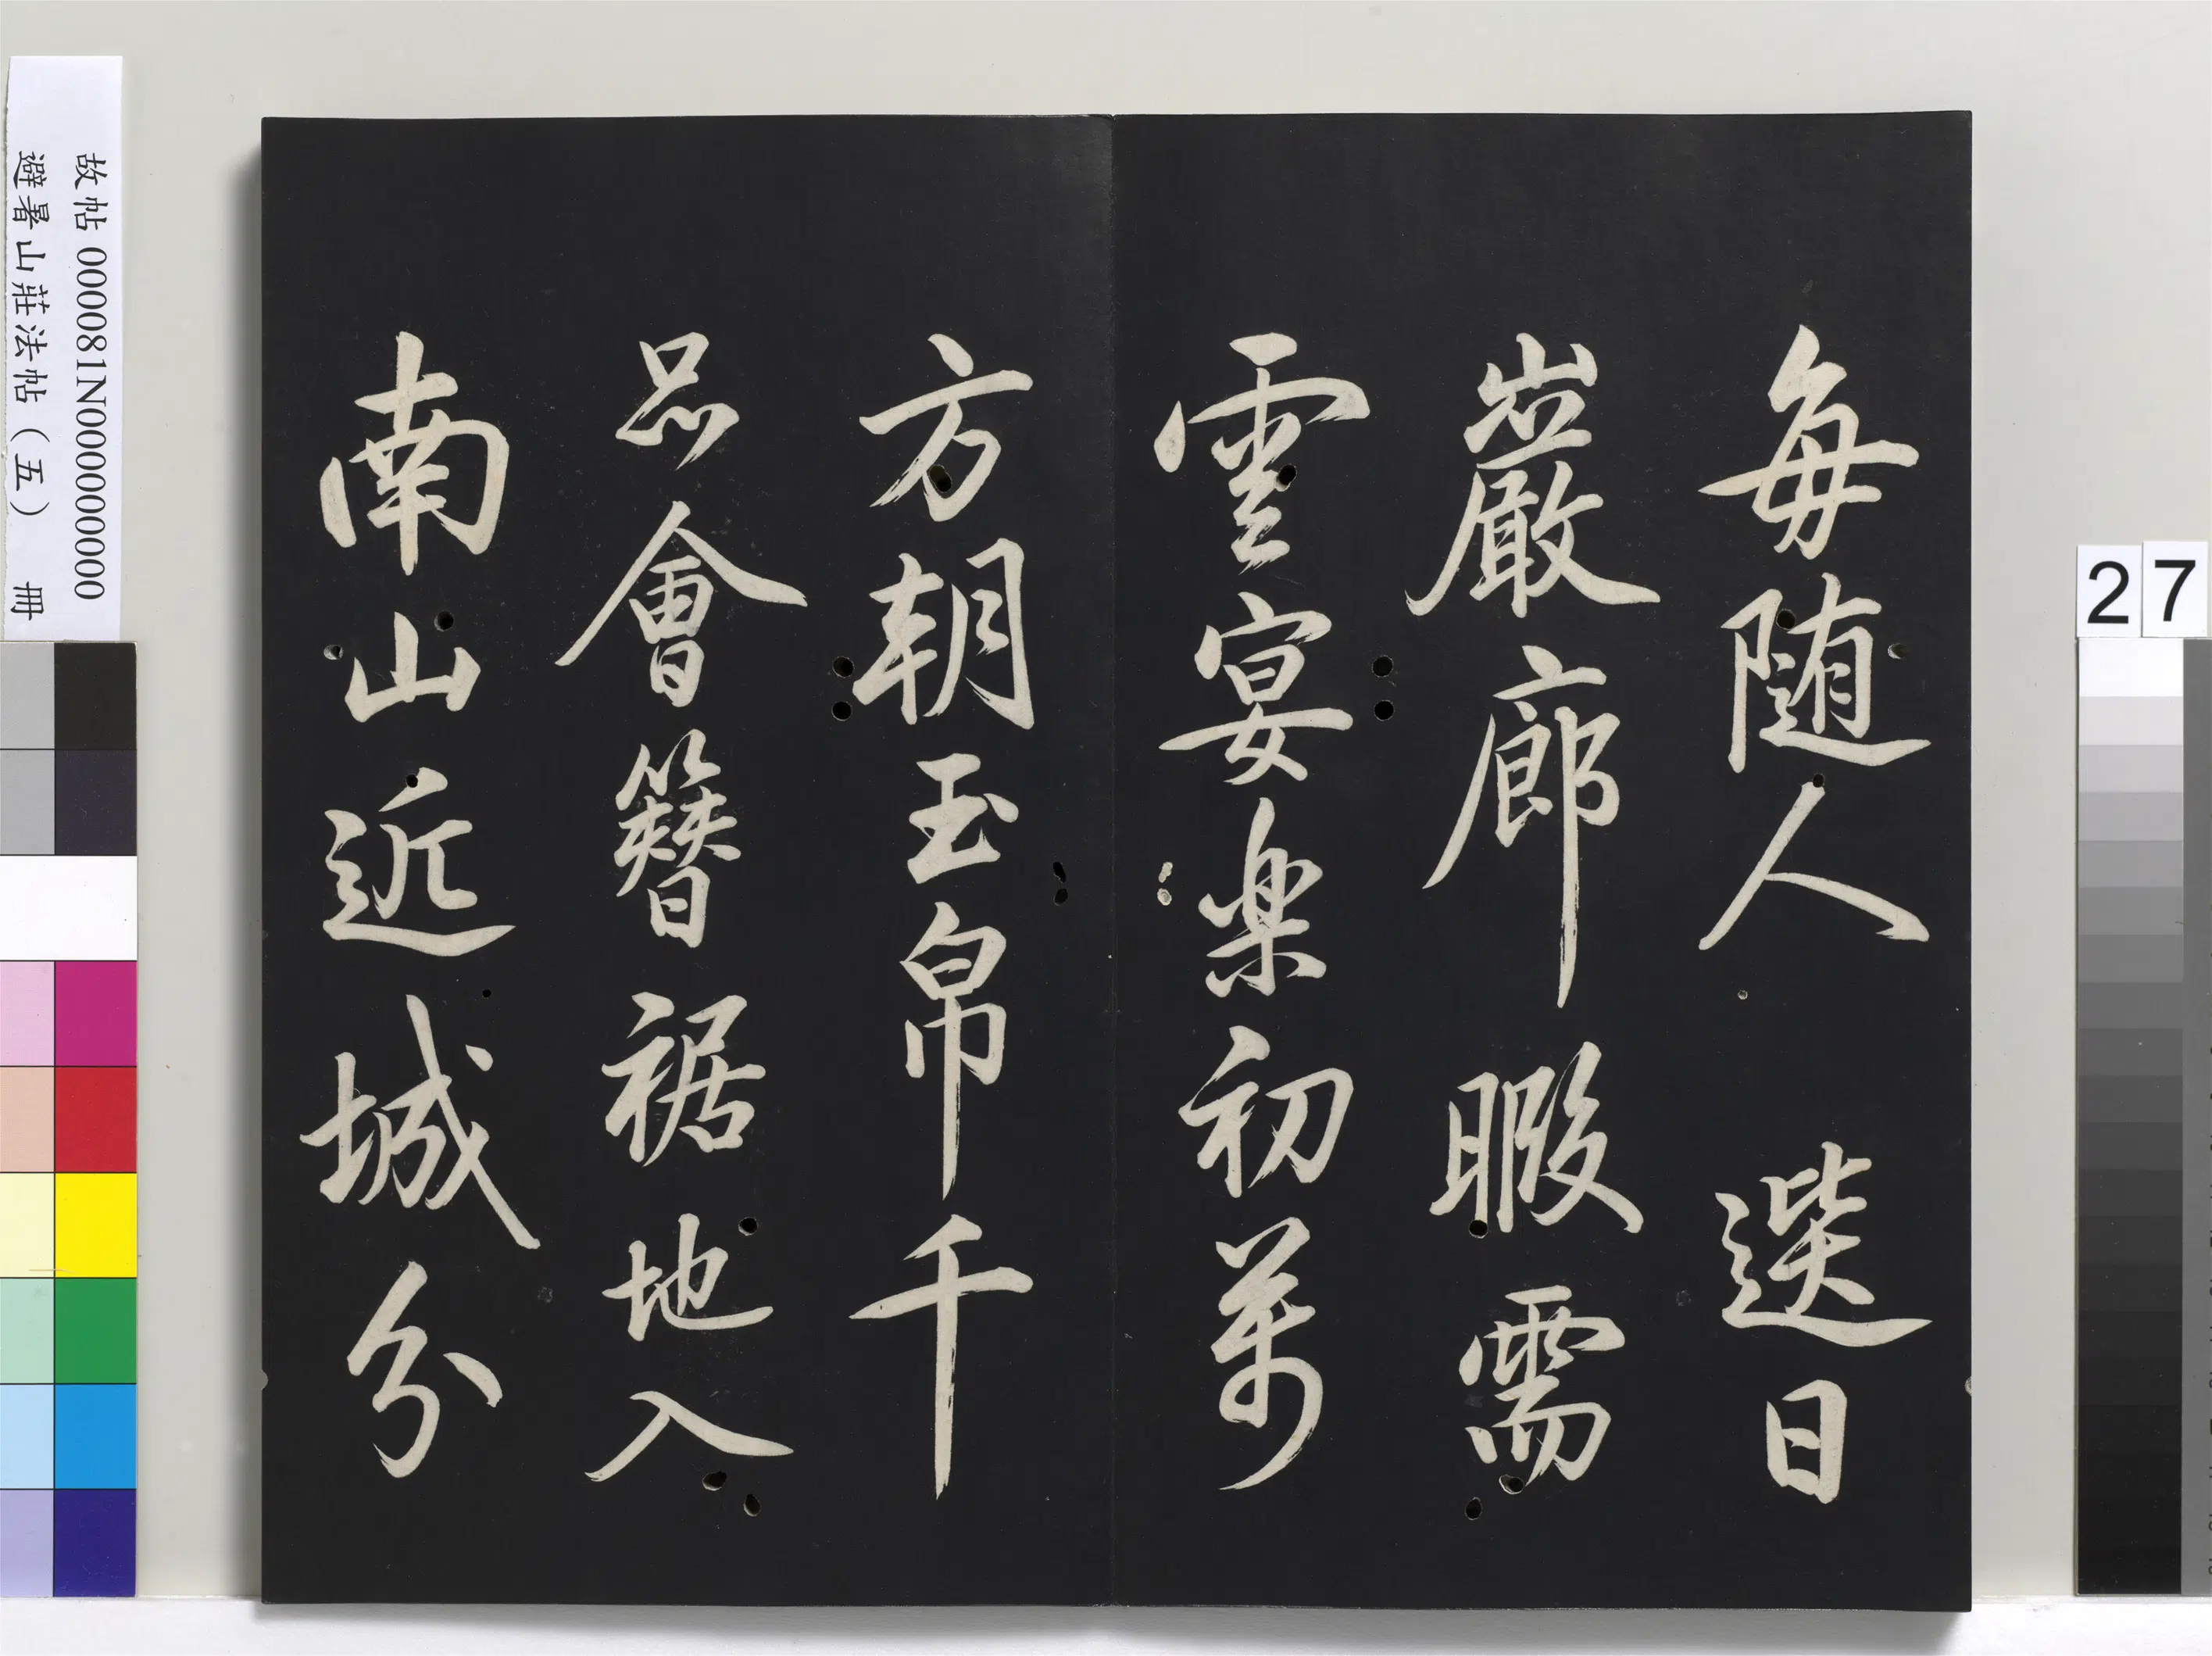 每随人 選日
巖廊暇需
雲宴楽初萬
方朝玉帛千
品會簪裾地入
南山近城分
故帖 000081N000000000
避暑山莊法帖（五） 冊
27